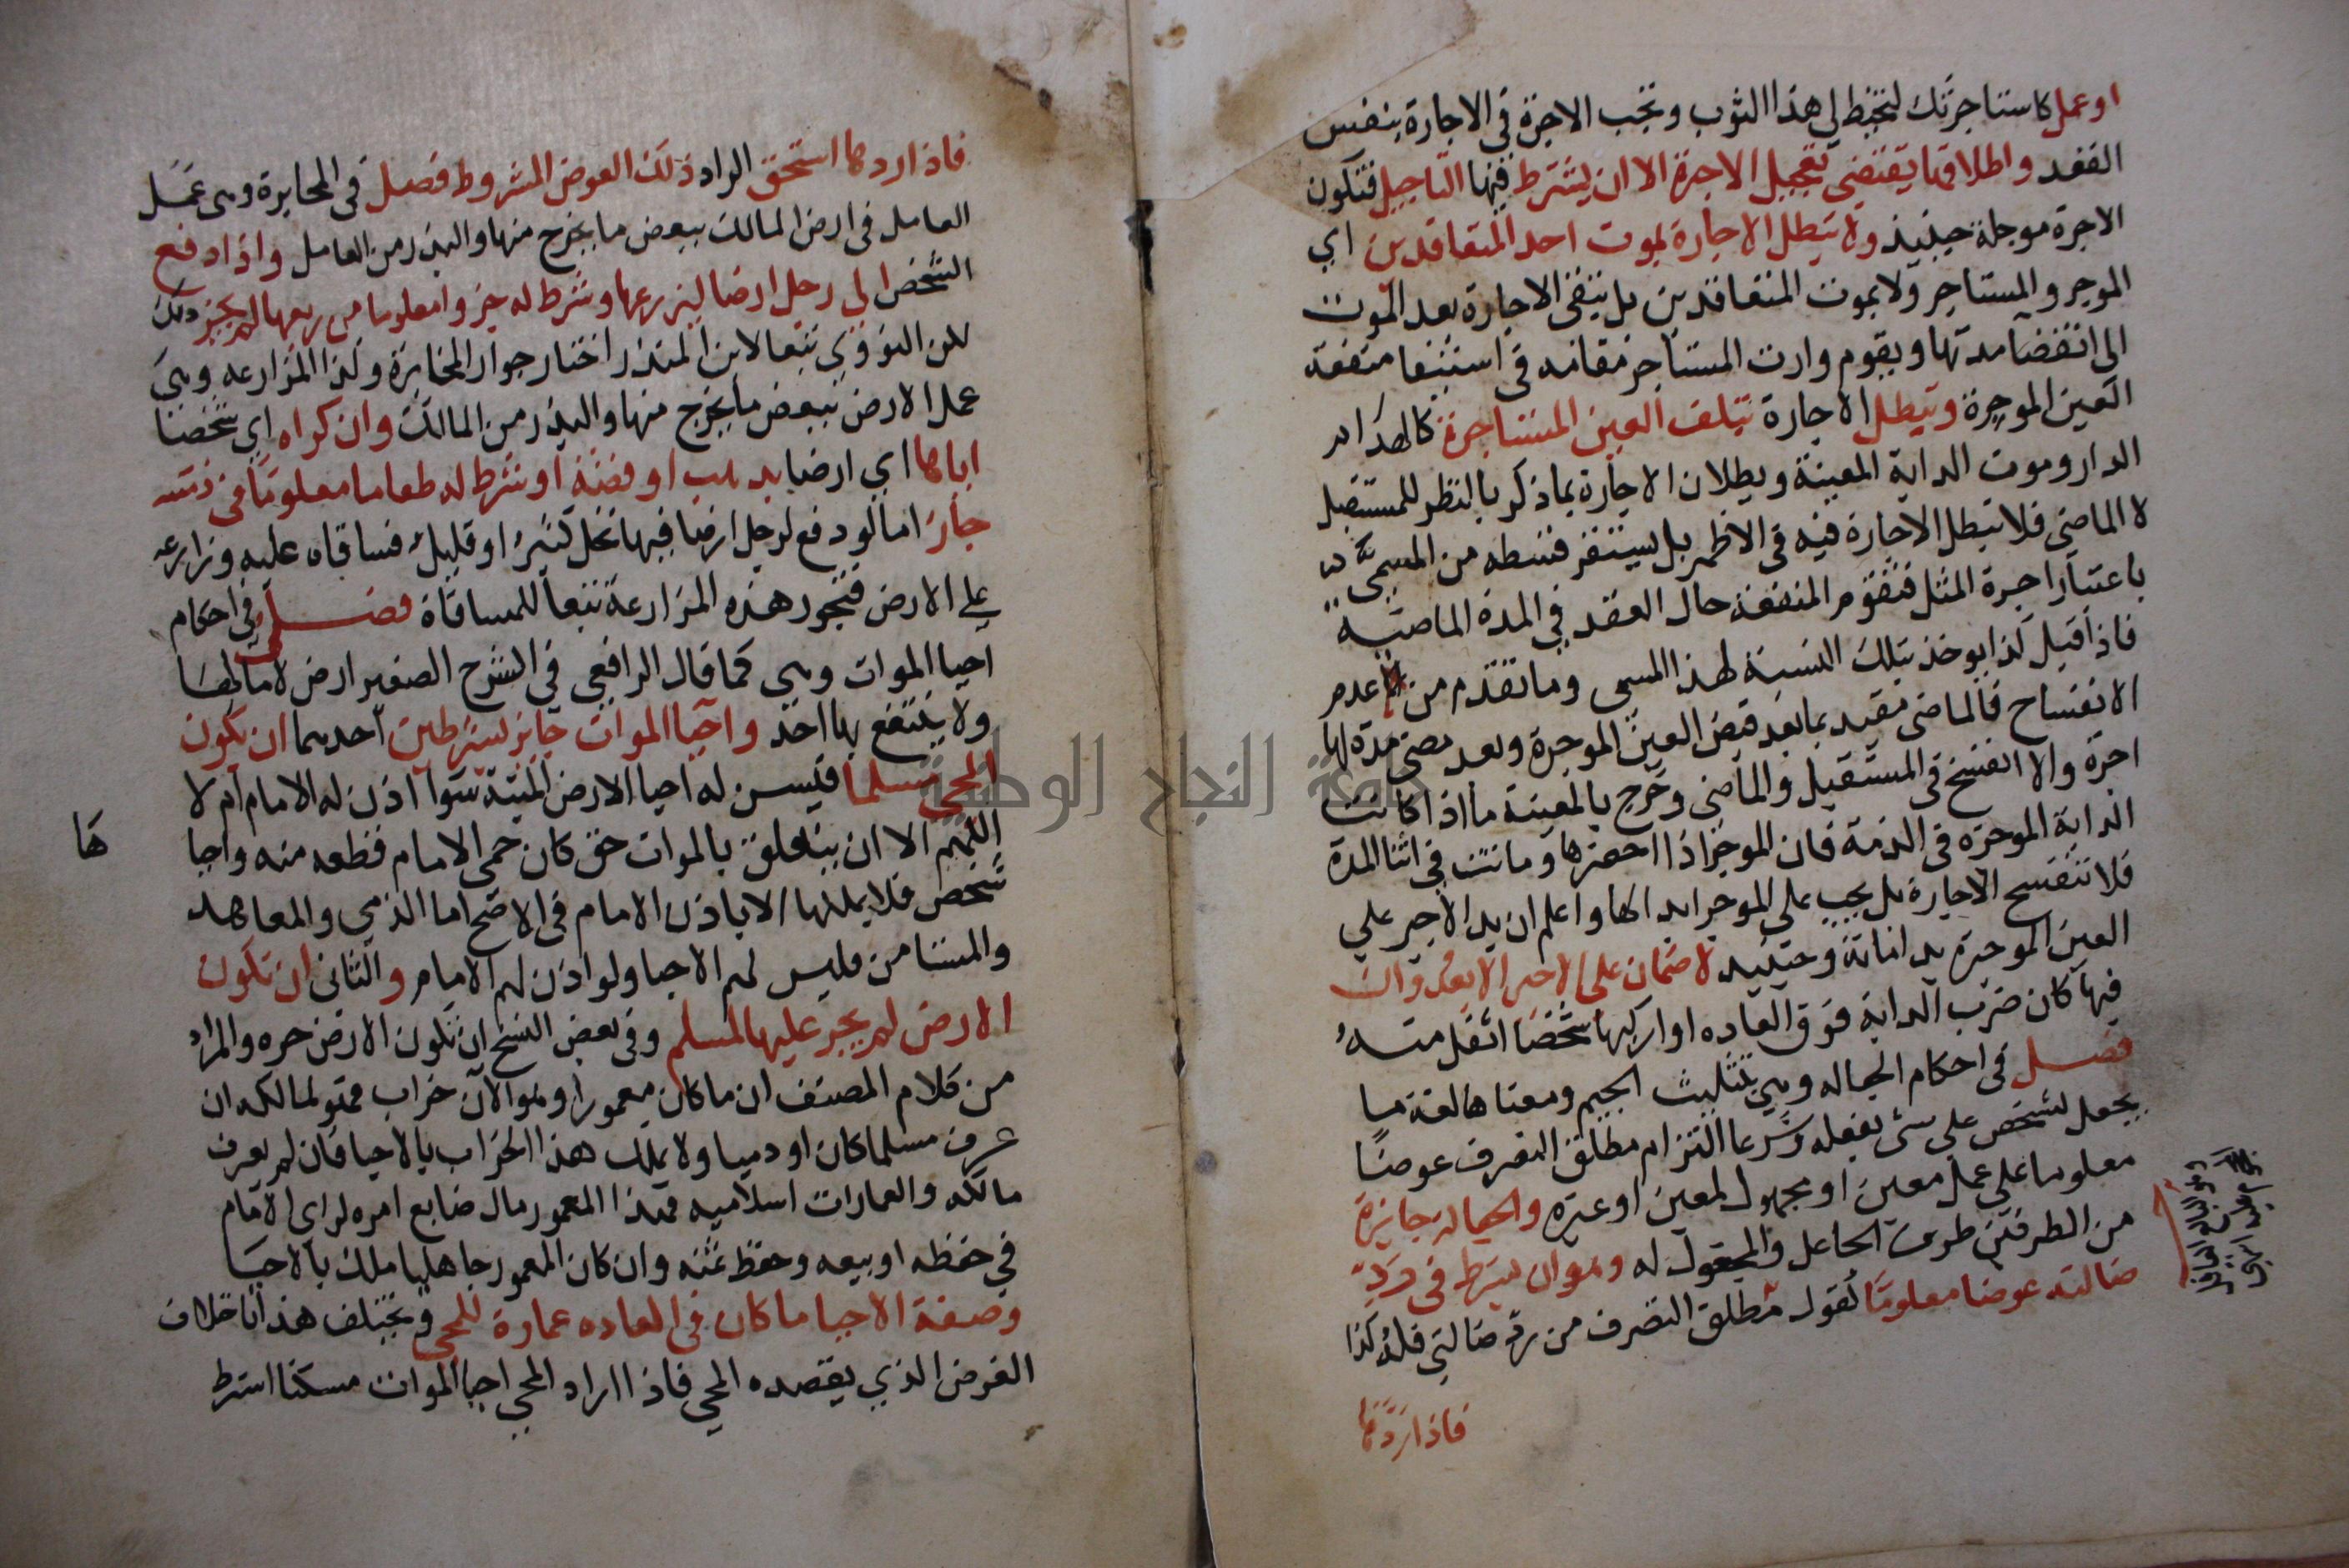 او عمل كاستاجرتك لتخيط لي هذا الثوب وتجب الاجرة في الاجارة بنفس
العقد واطلاقها يقتضي تعجيل الاجرة الا ان يشترط فيها التاجيل فتكون
الاجرة موجلة حينيذ ولا تبطل الاجارة بموت احد المتعاقدين اي
الموجر والمستاجر ولا بموت المتعاقدين بل تبقى الاجارة بعد الموت
الى انقضا مدتها ويقوم وارث المستاجر مقامه في استيفا منفعة
العين الموجرة وتبطل الاجارة بتلف العين المستاجرة كانهدام
الدار وموت الداية المعينة وبطلان الاجارة بما ذكر بالنظر للمستقبل
لا الماضي فلا تبطل الاجارة فيه في الاظهر بل يستقر قسطه من المسمى
باعتبار اجرة المثل فتقوم المنفعة حال العقد في المدة الماضية
فاذا قيل كذا يوخذ بتلك النسبة لهذا المسمى وما تقدم من عدم
الانفساخ فالماضي مقيد بما بعد قبض العين الموجرة وبعد مضي مدة لها
اجرة والا انفسخ في المستقبل والماضي وخرج بالمعينة ما اذا كانت
الداية الموجره في الذمة فان الموجر اذا احضرها وماتت في اثنا المدة
فلا تنفسخ الاجارة بل يجب على الموجر ابدالها واعلم ان يد الاجير علي
العين الموجرة يد امانة وحينيد لا ضمان على الاجير الا بعدوان
فيها كان ضرب الداية فوق العاده او اركبها شخصا اثقل منه
فصل في احكام الجعاله وهي بتثليث الجيم ومعناها لغة ما
يجعل لشخص على شي يفعله وشرعا التزام مطلق التصرف عوضا
معلوما على عمل معين او مجهول لمعين او غيره والجعالة جايزة
من الطرفين طرف الجاعل والمجعول له وهو ان يشترط في رد
ضالته عوضا معلوما كقول مطلق التصرف من رد ضالتي فله كذا
فاذا ردها
فاذا ردها استحق الراد ذلك العوض المشروط فصل في المخابرة وهي عمل
العامل في ارض المالك ببعض ما يخرج منها والبذر من العامل واذا دفع
الشخص الى رجل ارضا ليزرعها وشرط له جزوا معلوما من ريعها لم يجز ذلك
لكن النووي تبعا لابن المنذر اختار جواز المخابرة وكذا المزارعه وهي
عمل الارض ببعض ما يخرج منها والبذر من المالك وان كراه اي شخصا
اياها اي ارضا بذهب او فضة او شرط له طعاما معلوما في ذمته
جاز اما لو دفع لرجل ارضا فيها نخل كثير او قليل فساقاه عليه وزارعه
على الارض فتجوز هذه المزارعة تبعا للمساقاة فصل في احكام
احيا الموات وهي كما قال الرافعي في الشرح الصغير ارض لا مالك لها
ولا ينتفع بها احد واحيا الموات جايز بشرطين احدهما ان يكون
المحي مسلما فيسن له احيا الارض الميتة سوا اذن له الامام ام لا
اللهم الا ان يتعلق بالموات حق كان حمى الامام قطعه منه واحيا
ها
شخص فلا يملكها الا باذن الامام في الاصح اما الذمي والمعاهد
والمستامن فليس لهم الاحيا ولو اذن لهم الامام والثاني ان تكون
الارض لم يجر عليها المسلم وفي بعض النسخ ان تكون الارض حره والمراد
من كلام المصنف ان ما كان معمورا وهو الان خراب فهو لمالكه ان
عرف مسلما كان او دميا ولا يملك هذا الخراب بالاحيا فان لم يعرف
مالكه والعمارات اسلاميه فهذا المعمور مال ضايع امره لراي الامام
في حفظه او بيعه وحفظ ثمنه وان كان المعمور جاهليا ملك بالاحيا
وصفة الاحيا ما كان في العاده عمارة للمحي ويختلف هذا باختلاف
الغرض الذي يقصده المحي فاذا اراد المحي احيا الموات مسكنا اشترط
جامعة النجاح الوطنية